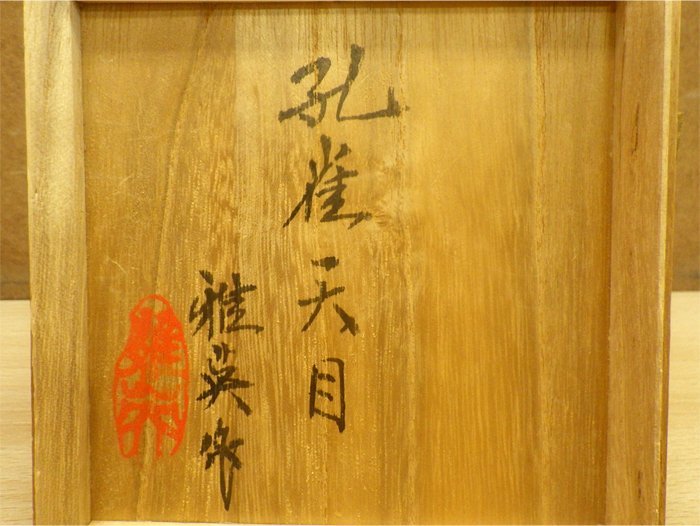 孔雀天目
雅英